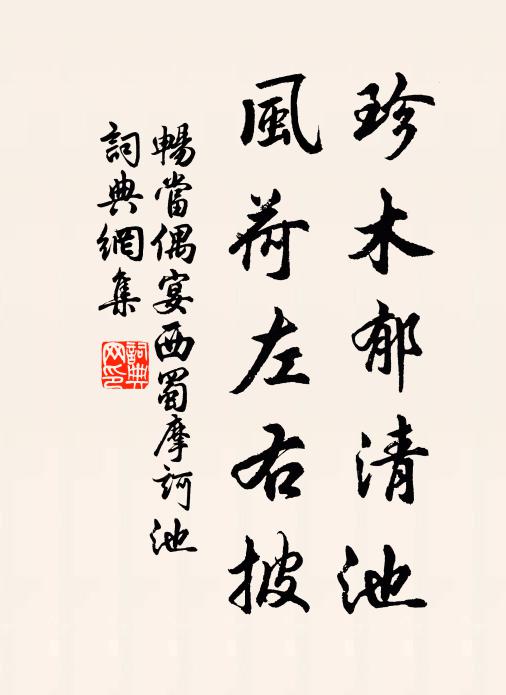 珍木郁清池
風荷左右披
暢當偶宴西蜀摩訶池
詞典網集
詞典网印